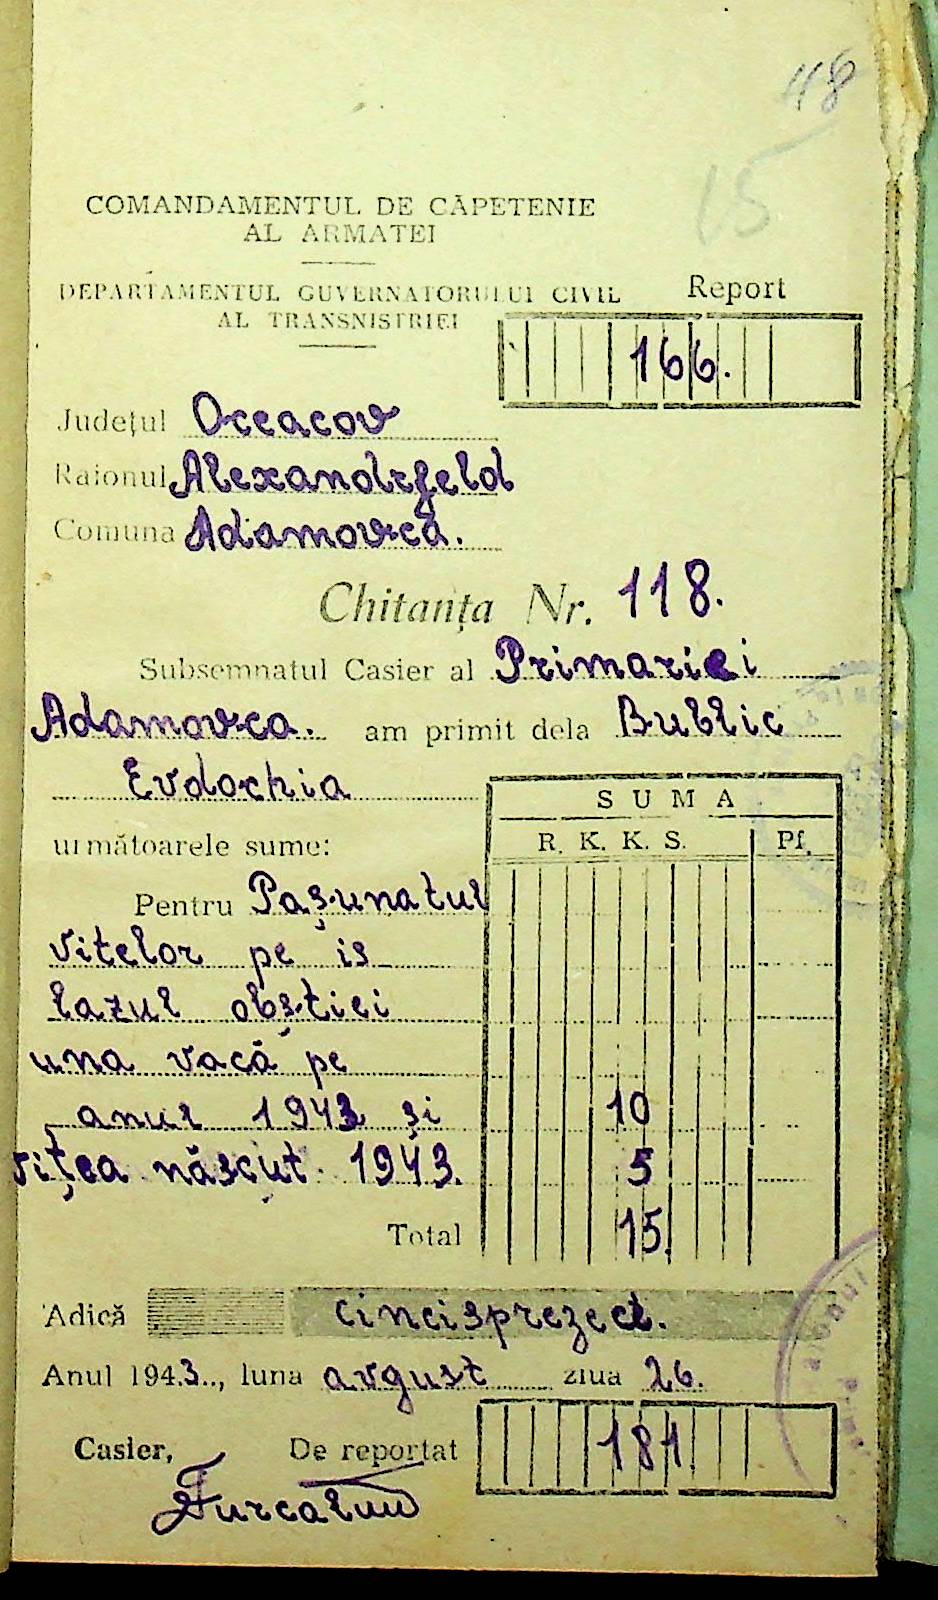 118
15
COMANDAMENTUL DE CĂPETENIE
AL ARMATEI
DEPARTAMENTUL GUVERNATORULUI CIVIL
AL TRANSNISTRIEI
Report
166.
Județul Oceacov
Raionul Alexandrfeld
Comuna Adamovca.
Chitanța Nr. 118.
Subsemnatul Casier al Primariei
Adamovca. am primit dela Bublic
Evdochia
SUMA
următoarele sume:
R. K. K. S. Pf.
Pentru Pașunatul
vitelor pe is
lazul obștiei
una vacă pe
anul 1943 și 10
vițea născut 1943. 5
Total 15.
Adică cincisprezeci.
Anul 1943.., luna avgust ziua 26.
Casier, De reportat 181